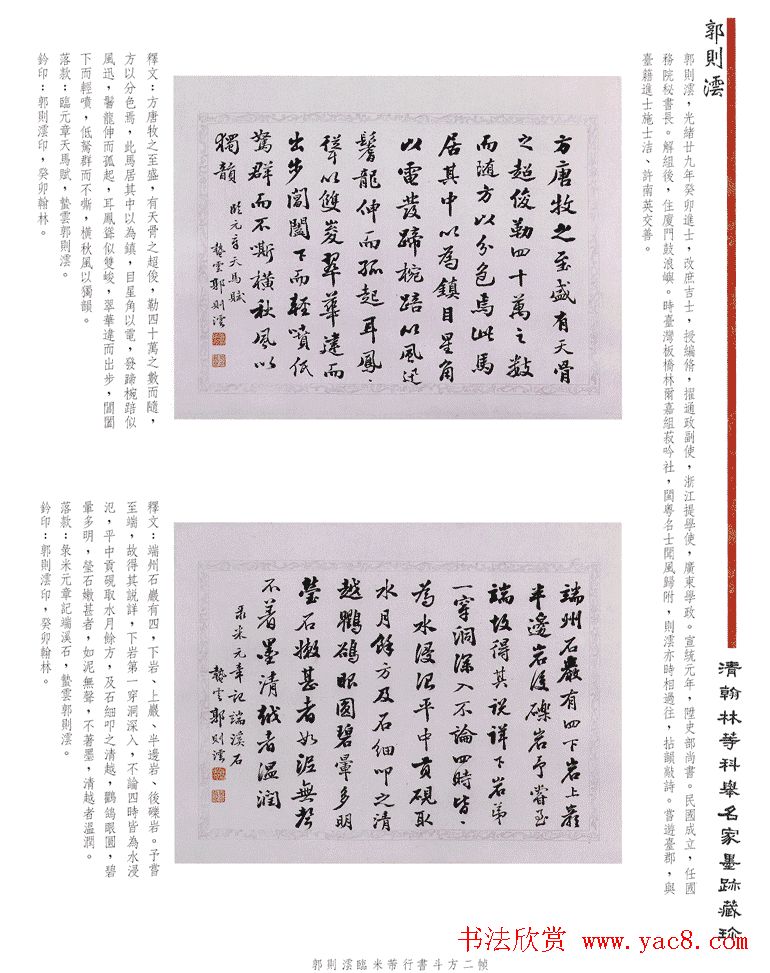 郭則澐
郭則澐，光緒廿九年癸卯進士，改庶吉士，授編脩，擢通政副使，浙江提學使，廣東學政。宣統元年，陞史部尚書。民國成立，任國
務院秘書長。解組後，住廈門鼓浪嶼。時臺灣板橋林爾嘉組菽吟社，閩粵名士聞風歸附，則澐亦時相過往，拈韻敲詩。嘗遊臺郡，與
臺籍進士施士洁、許南英交善。
清翰林等科舉名家墨跡藏珍
方唐牧之至盛有天骨
之超俊勒四十萬之数
而随方以分色焉此馬
居其中以為鎮目星角
以電發蹄椀踣以風迅
鬐龍伸而孤起耳鳳〻
聳以雙峻翠華建而
出步閶闔下而輕噴低
駑群而不嘶橫秋風以
獨韻
臨元章天馬賦
蟄雲郭則澐
釋文：方唐牧之至盛，有天骨之超俊，勒四十萬之數而隨，
方以分色焉，此馬居其中以為鎮，目星角以電，發蹄椀踣似
風迅，鬐龍伸而孤起，耳鳳聳似雙峻，翠華違而出步，閶闔
下而輕噴，低駑群而不嘶，橫秋風以獨韻。
落款：臨元章天馬賦，蟄雲郭則澐。
鈐印：郭則澐印，癸卯翰林。
端州石巖有四下岩上巖
半邊岩後礫岩予嘗至
端故得其説詳下岩第
一穿洞深入不論四時皆〻
為水浸氾平中貢硯取
水月餘方及石细叩之清
越鸜鵒眼圆碧暈多明
瑩石嫩甚者如泥無聲
不著墨清越者溫潤
录米元章記端溪石
蟄雲郭則澐
釋文：端州石巖有四，下岩、上巖、半邊岩、後礫岩。予嘗
至端，故得其説詳，下岩第一穿洞深入，不論四時皆為水浸
氾，平中貢硯取水月餘方，及石細叩之清越，鸜鵒眼圓，碧
暈多明，瑩石嫩甚者，如泥無聲，不著墨，清越者溫潤。
落款：彔米元章記端溪石，蟄雲郭則澐。
鈐印：郭則澐印，癸卯翰林。
郭則澐臨米芾行書斗方二幀
书法欣赏 www.yac8.com